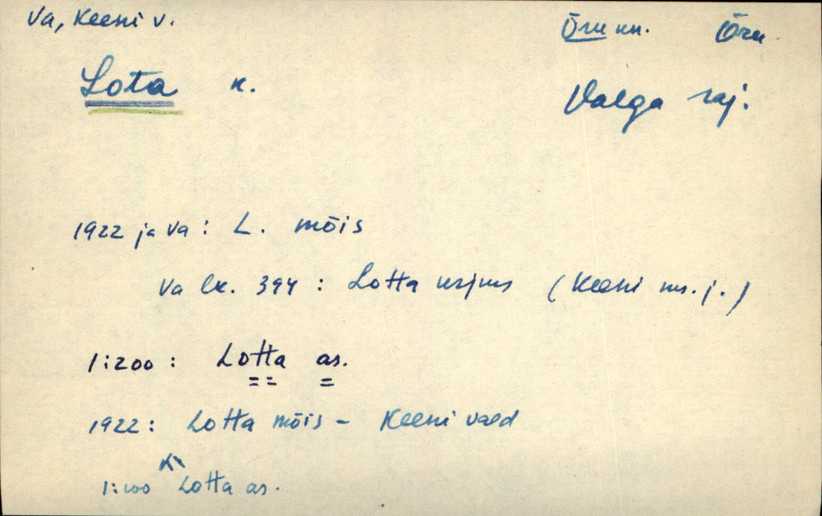 Va, Keeni v. Õru kn. Õru
Lota k. Valga raj.
1922 ja Va: L. mõis
Va lk. 394: Lotta (Keeni ms. j.)
1:200: Lotta as.
1922: Lotta mõis - Keeni vald
1:100 Lotta as.